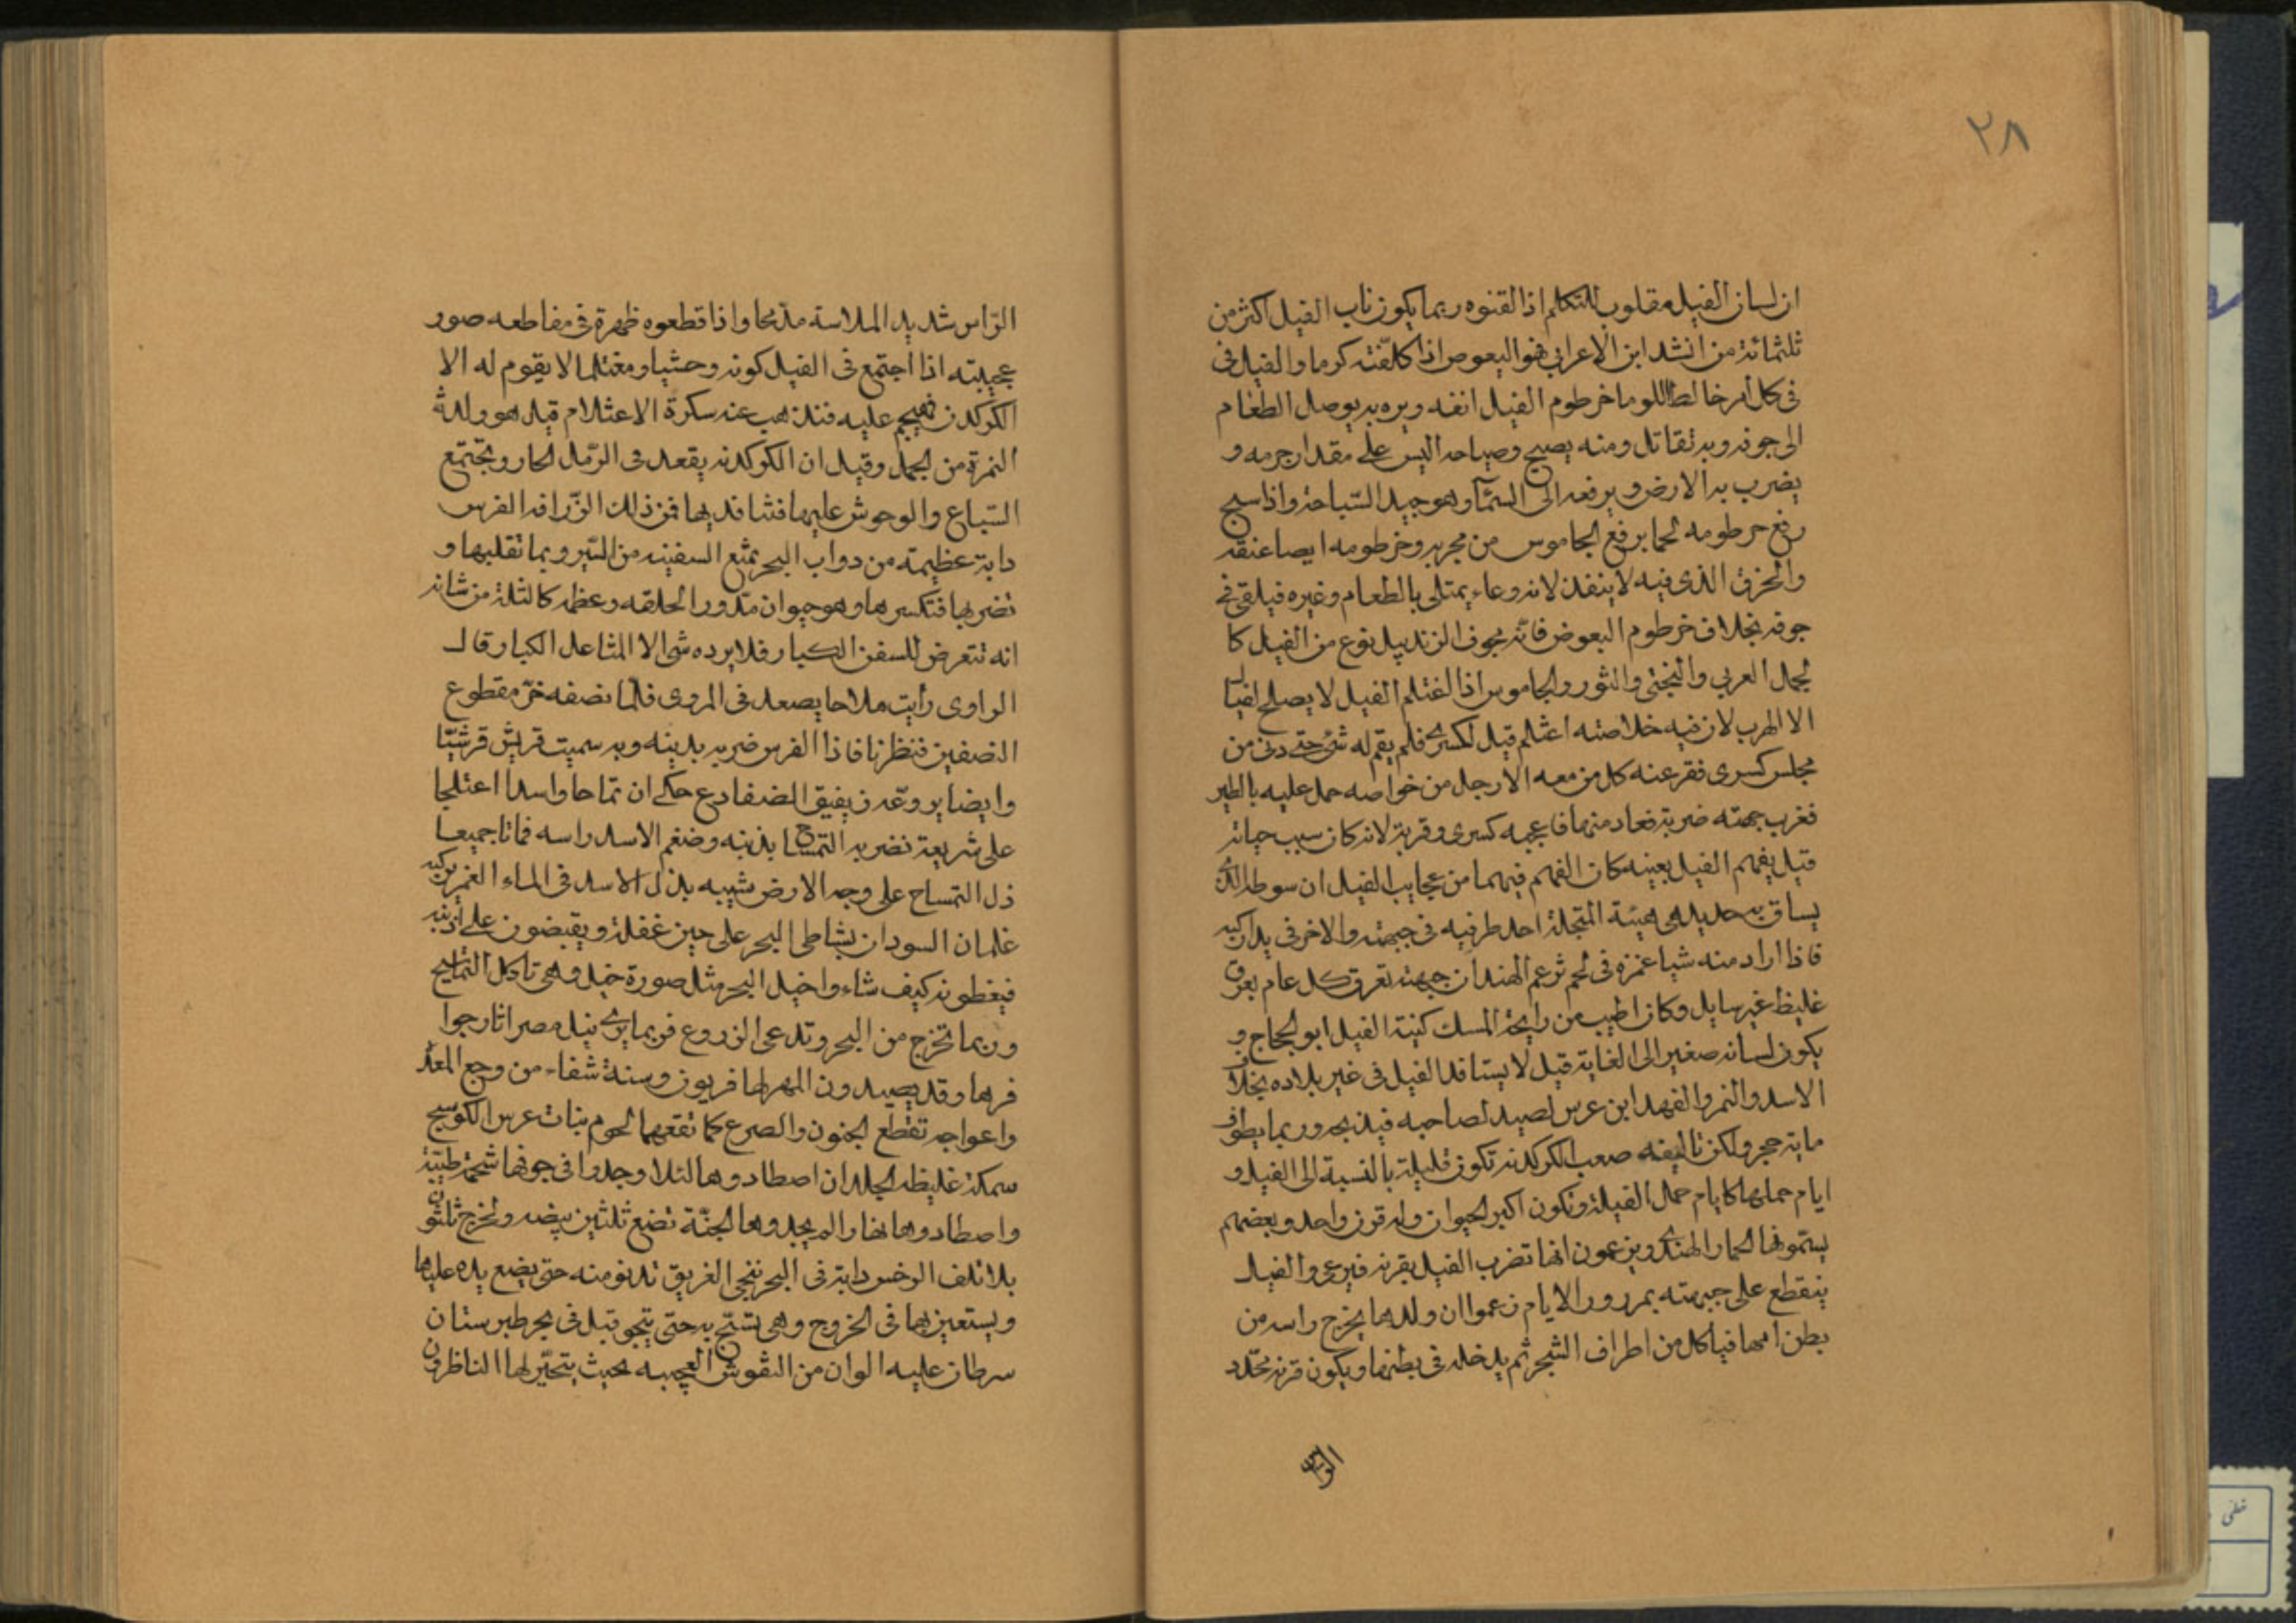 ٢٨
ان لسان الفيل مقلوب للتكلم اذا لقنوه ربما يكون ناب الفيل اكثر من
ثلثمائة من انشد ابن الاعرابي هو البعوص اذا كلفته كرما والفيل في
في كل أمر خالط اللوما خرطوم الفيل انفه ويره به يوصل الطعام
الى جوفه وبه تقاتل ومنه يصيح وصياحه اليس على مقدار جرمه و
يضرب به الارض ويرفعه الى السماء وهو جيد السباحة واذا سبح
رفع خرطومه كما يرفع الجاموس من مجريه وخرطومه ايضا عنقه
والخرق الذى فيه لا ينفذ لانه وعاء يمتلى بالطعام وغيره فيلقى في
جوفه بخلاف خرطوم البعوض فانه مجوف الزندبيل نوع من الفيل كا
لجمال العربي والبختى والثور والجاموس اذا الغتلم الفيل لا يصلح لفيال
الا الهرب لان فيه خلاصته اغتلم فيل لكسرى فلم يقم له شئ حتى دنى من
مجلس كسرى ففر عنه كل من معه الا رجل من خواصه حمل عليه بالطبر
فغرب جبهته ضربة فعاد منهما فاعجبه كسرى وقربه لانه كان سبب حياته
قيل يفهم الفيل بعينه مكان الفهم فيهما من عجايب الفيل ان سوطه الذى
يساق به حديد هى هيئة المتجلة احد طرفيه في جبهته والاخر في يد راكبه
فاذا اراد منه شيا غمزه في لحم ثم زعم الهند ان جبهته تعرق كل عام بعرق
غليظ غير سايل وكان اطيب من رايحة المسك كنية الفيل ابو الحجاج و
يكون لسانه صغير الى الغاية قيل لا يستافد الفيل في غير بلاده بخلاف
الاسد والنمر والفهد ابن عرس لصيد لصاحبه فيذبحه وربما يطوف
ماية حجر ولكن تاليفه صعب الكركدنه تكون قليلة بالنسبة الى الفيل و
ايام حملها كايام حمل الفيلة وتكون اكبر الحيوان وله قرن واحد وبعضهم
يسمونها الحمار الهندى ويزعمون انها تضرب الفيل بقرنه فيرعى والفيل
ينقطع على جبهته بمرور الايام زعموا ان ولدها يخرج راسه من
بطن امها فياكل من اطراف الشجر ثم يدخله في بطنها ويكون قرنه محدد
الراس شديد الملاسة مدمحا واذا قطعوه ظهرة في مقاطعه صور
عجيبته اذا اجتمع في الفيل كونه وحشيا ومغتلما لا يقوم له الا
الكركدن فهيجم عليه فتذهب عنه سكرة الاعتلام قيل هو ولدة
النمرة من الجمل وقيل ان الكركدنه يقعد في الرمل الحار وتجتمع
السباع والوحوش عليها فتسافد بها فمن ذلك الزرافه الفرس
دابة عظيمته من دواب البحر تمنع السفينه من السير وربما تقلبها و
تضربها فتكسرها وهو حيوان مدور الحلقه وعظمه كالثلة من شانه
انه تتعرض للسفن الكبار فلا يرده شئ الا المثاعل الكبار قال
الراوى رأيت ملاحا يصعد في المردى فلما نصفه خر مقطوع
النصفين فنظرنا فاذا الفرس ضربه بذينه وبه سميت قريش قرشيا
وايضا يروعه نفيق الضفادع حكى ان تمساحا واسدا اعتلجا
على شريعة فضربه التمساح بذنبه وضغم الاسد راسه فماتا جميعا
ذل التمساح على وجه الارض شبيه بذل الاسد في الماء الغمر يركبه
غلمان السودان بشاطى البحر على حين غفلة ويقبضون على أذنيه
فيغطونه كيف شاء واخيل البحر مثل صورة خيل وهى تاكل التماسيح
وربما تخرج من البحر وتدعى الزروع فربما يرى نيل مصر اثار جوا
فرها وقد يصيدون المهر لها فربون وسنة شفاء من وجع المعدة
واعواجه تقطع الجنون والصرع كما تقعهما لحوم بنات عرس الكوسج
سمكة غليظه الجلد ان اصطادوها لئلا وجدوا في جوفها شحمة طيبة
واصطادوها نهارا لم يجدوها الجنة تضع ثلثين بيضه وتخرج ثلثون
بلا تلف الرخس دابة في البحر تنجى الغريق تدنو منه حتى يضع يده عليها
ويستعين بها في الخروج وهى تسبح به حتى ينجو قيل في بحر طبرستان
سرطان عليه الوان من النقوش العجيبه بحيث يتحير لها الناظرون